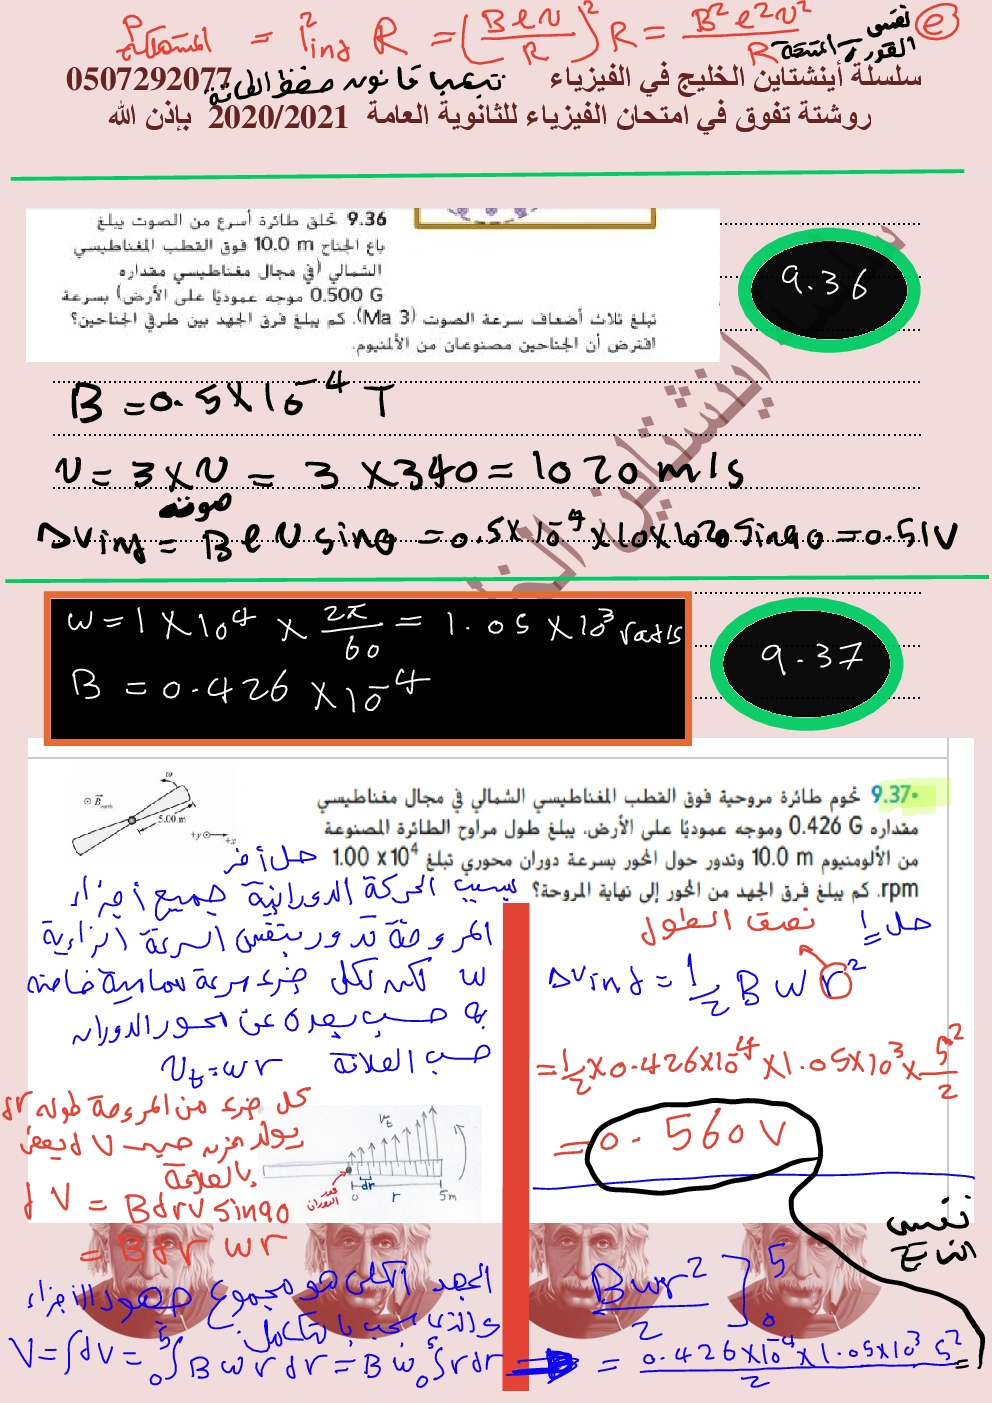 المستهلكة P = I²ind R = (Bℓv/R)² R = B²ℓ²v²/R نفس القدرة المنتجة (e)
سلسلة أينشتاين الخليج في الفيزياء 0507292077
تبعا قانون حفظ الطاقة
روشتة تفوق في امتحان الفيزياء للثانوية العامة 2020/2021 بإذن الله
9.36 تحلق طائرة أسرع من الصوت يبلغ
باع الجناح 10.0 m فوق القطب المغناطيسي
الشمالي (في مجال مغناطيسي مقداره
0.500 G موجه عموديًا على الأرض) بسرعة
تبلغ ثلاث أضعاف سرعة الصوت (Ma 3). كم يبلغ فرق الجهد بين طرفي الجناحين؟
افترض أن الجناحين مصنوعان من الألمنيوم.
9.36
B = 0.5 × 10⁻⁴ T
v = 3 × v صوت = 3 × 340 = 1020 m/s
Δvind = Bℓv sinθ = 0.5×10⁻⁴ × 10 × 1020 sin90 = 0.51V
سلسلة أينشتاين
w = 1 × 10⁴ × 2π/60 = 1.05 × 10³ rad/s
B = 0.426 × 10⁻⁴
9.37
9.37• تحوم طائرة مروحية فوق القطب المغناطيسي الشمالي في مجال مغناطيسي
مقداره 0.426 G وموجه عموديًا على الأرض. يبلغ طول مراوح الطائرة المصنوعة
من الألومنيوم 10.0 m وتدور حول المحور بسرعة دوران محوري تبلغ 1.00 x 10⁴
rpm. كم يبلغ فرق الجهد من المحور إلى نهاية المروحة؟
ω
B⃗earth
5.00 m
+y
+x
حل 1
نصف الطول
Δvind = 1/2 B w r²
= 1/2 × 0.426×10⁻⁴ × 1.05×10³ × 5²/2
= 0.560 V
نفس الناتج
حل أخر
بسبب الحركة الدورانية جميع أجزاء
المروحة تدور بنفس السرعة الزاوية
w لكن لكل جزء سرعة مماسية خاصة
به حسب بعده عن محور الدوران
حسب العلاقة vt = wr
كل جزء من المروحة طوله dr
يولد فرق جهد dV يعطى
بالعلاقة
dV = Bdrv sin90
= Bdr wr
vt
محور الدوران
0 dr r 5m
الجهد الكلي هو مجموع جهود الأجزاء
والذي يحسب بالتكامل
V = ∫dv = ₀∫⁵ B w r dr = B w ₀∫⁵ r dr
Bwr²/2 ]₀⁵
= 0.426×10⁻⁴ × 1.05×10³ 5²/2 =